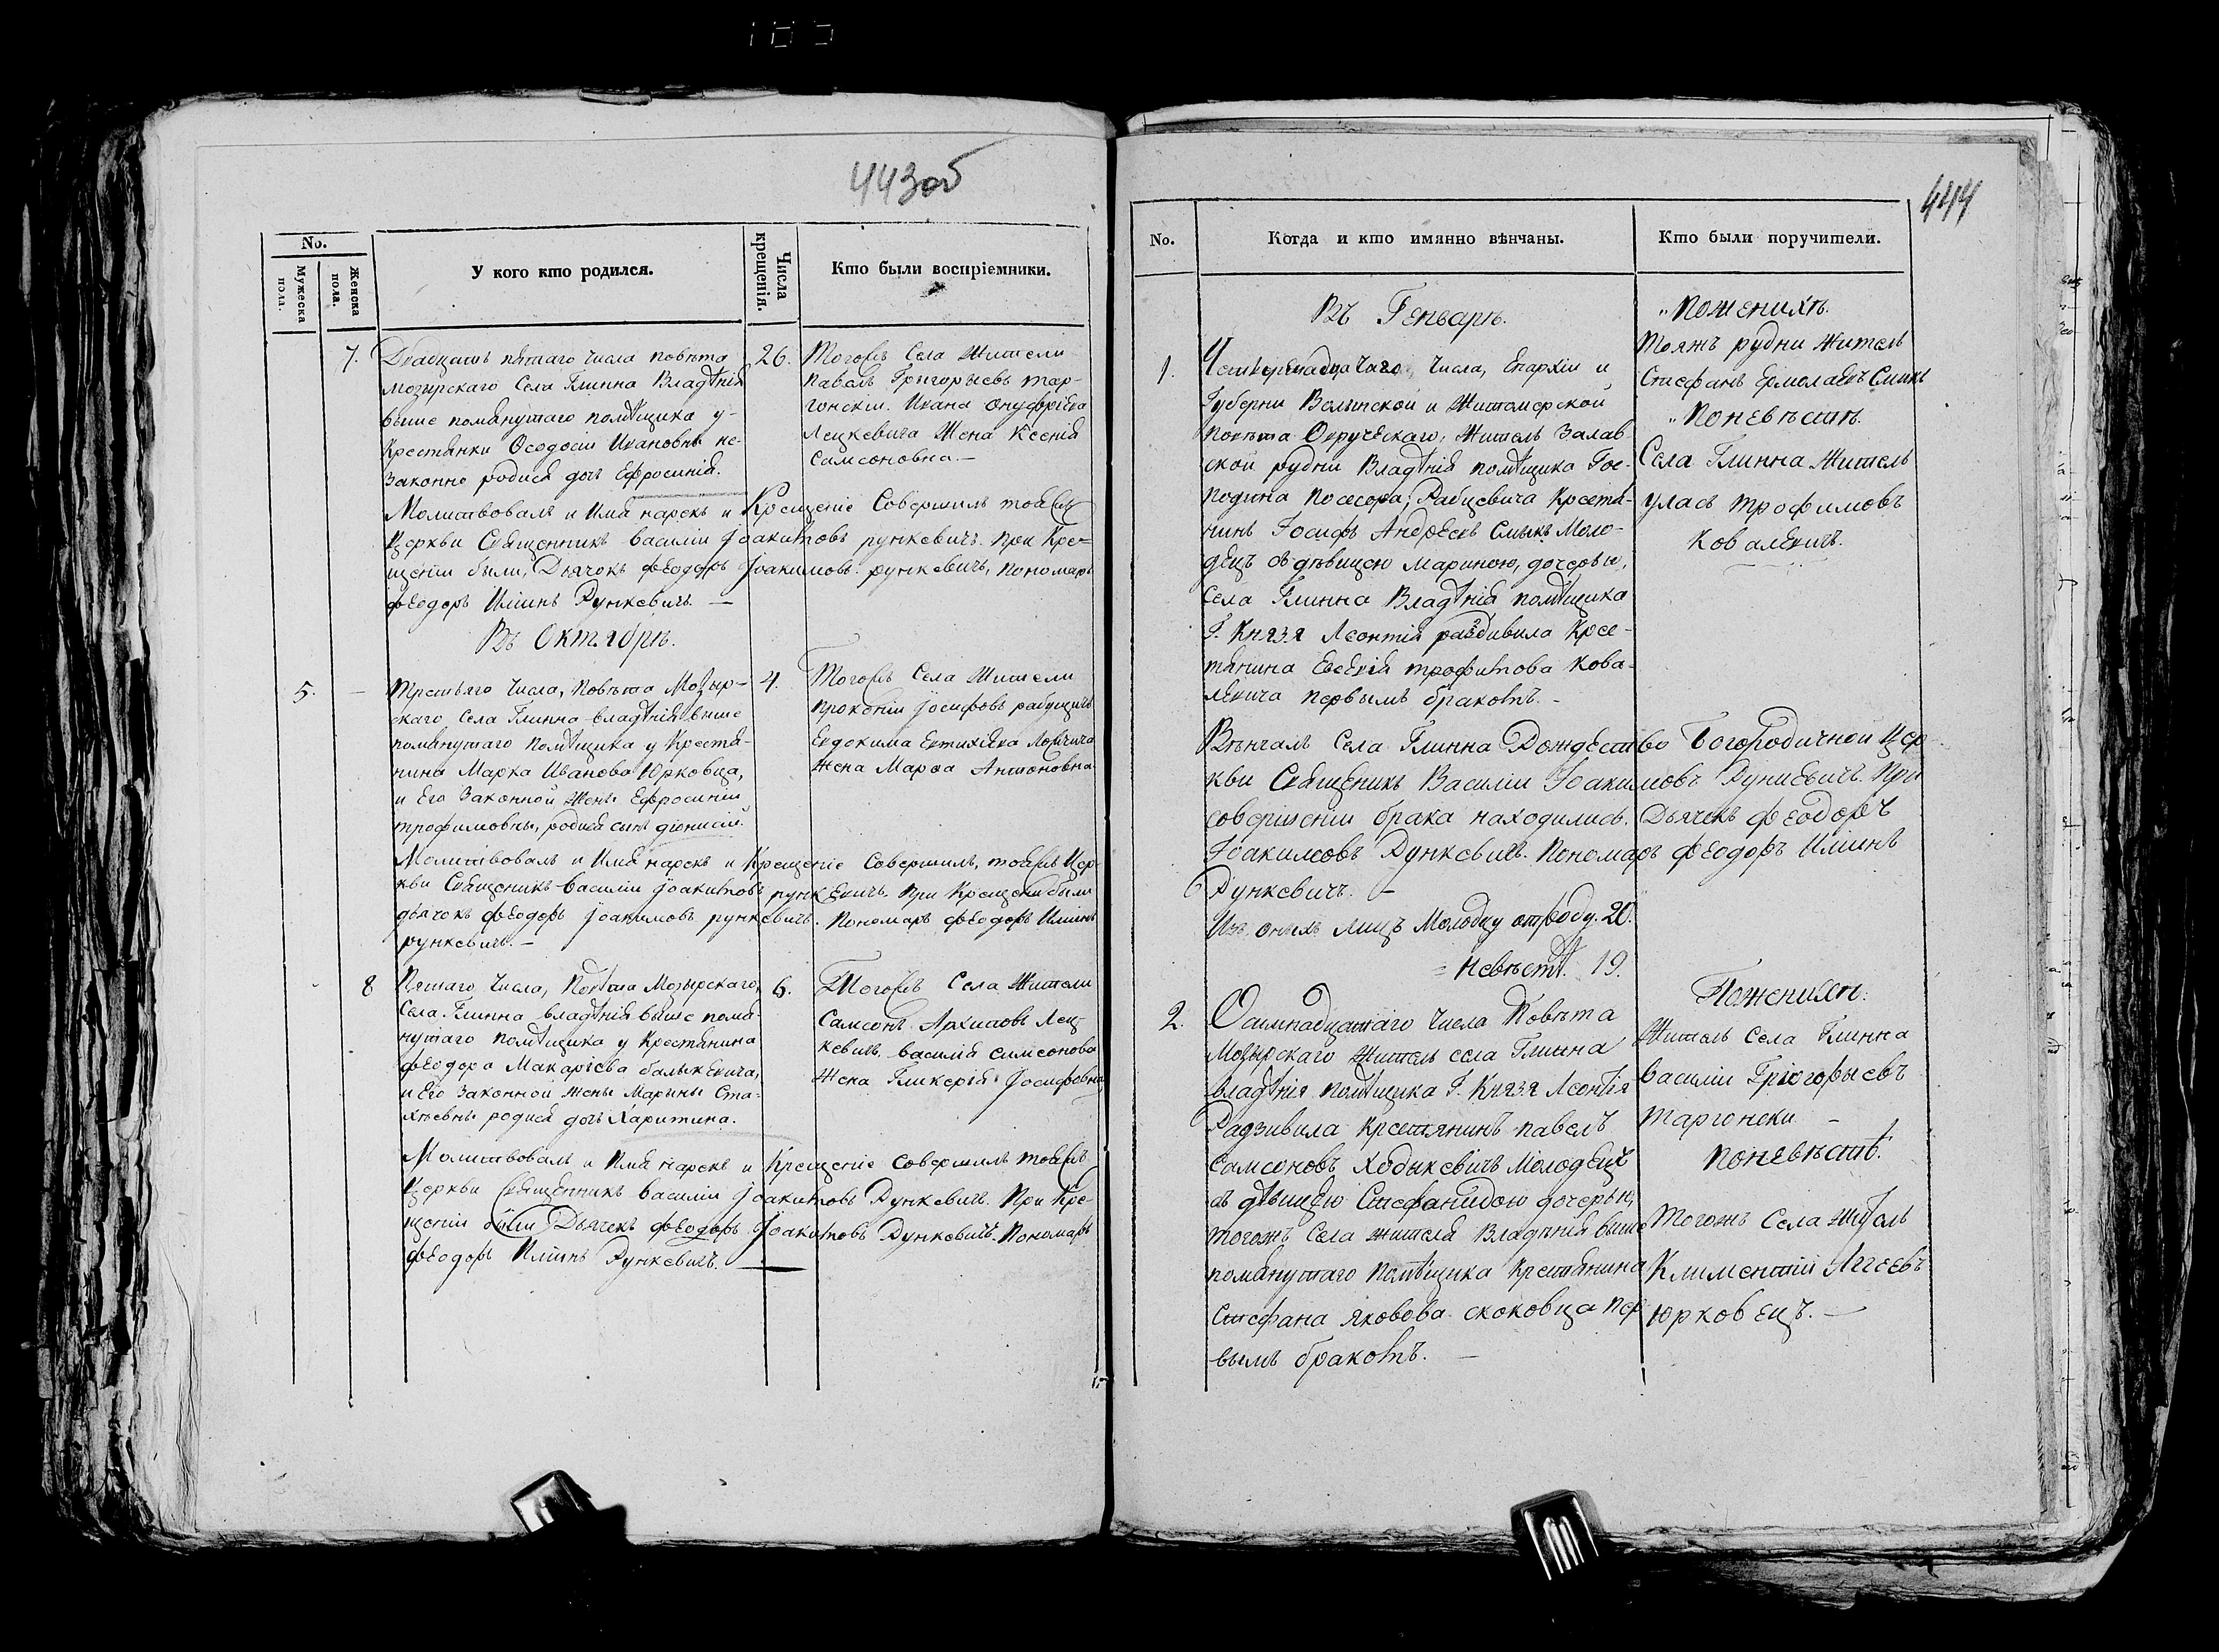 443об
No.
Мужеска пола.
Женска пола.
У кого кто родился.
Числа крещенія.
Кто были воспріемники.
7.
Двадцать пятаго числа повѣта
Мозырскаго Села Глинна Владѣнія
выше помянутаго помѣщика у
Крестянки Ѳеодосіи Ивановны не-
законно родися дочь Ефросинія.
26.
Тогожъ Села Жители
Павелъ Григорьевъ Тар-
гонскіи. Ивана Онуфріева
Лецкевича Жена Ксенія
Самсоновна.—
Молитвовалъ и Имя нарекъ и Крещеніе Совершилъ тояжъ
Церкви Священникъ Василіи Іоакимовъ рункевичъ. При Кре-
щеніи были, Дьячокъ Феодоръ Іоакимовъ рункевичъ, Пономарь
Феодоръ Илiинъ Рункевичъ. —
Въ Октябрѣ.
5.
Третьяго Числа, Повѣта Мозыр-
скаго, села Глинна владѣнія выше
помянутаго Помѣщика у Крестя-
нина Марка Иванова Юрковца,
и Его Законной Жены Ефросиніи
трофимовны, родися сынъ діонисій.
4.
Тогожъ Села Жители
Прокопіи Іосифовъ
Евдокима Евтихіева
Жена Марѳа Антоновна
Молитвовалъ и Имя нарекъ и Крещеніе Совершилъ, тояжъ Цер-
кви Священикъ Василіи Іоакимовъ рункевичъ. При Крещеніи были
дьячокъ Феодоръ Іоакимовъ рункевичъ. Пономарь Феодоръ Илiинъ
рункевичъ. —
8
Пятаго Числа, Повѣта Мозырскаго,
Села Глинна владѣнія выше помя-
нутаго помѣщика у Крестянина
Феодора Макаріева балыкевича,
и Его Законной Жены Марины Ста-
хѣевны родися дочь Харитина.
6.
Тогожъ Села Жители
Самсонъ Архиповъ Лец-
кевичъ, василія симсонова
Жена Гликерія Іосифовна
Молитвовалъ и Имя нарекъ и Крещеніе совершилъ тояжъ
Церкви Священникъ Василіи Іоакимовъ Рункевичъ. При Кре-
щеніи были Дьячекъ Феодоръ Іоакимовъ Рункевичъ. Пономарь
Феодоръ Илiинъ Рункевичъ.
444
No.
Когда и кто имянно вѣнчаны.
Кто были поручители.
Въ Генварѣ.
1.
Четвернадцатаго, Числа, Епархіи и
Губерни Волынской и Житомерской
Повѣта Овруческаго, Житель Залав-
ской рудни Владѣнія помѣщика Гос-
подина Посесора, Рабцевича Крестя-
нинъ Іосифъ Андреевъ Смыкъ Моло-
децъ съ дѣвицею Мариною, дочерью,
Села Глинна Владѣнія помѣщика
Г. Князя Леонтія раздивила Крес-
тянина Евсевія трофимова Кова-
левича первымъ бракомъ. -
„Поженихѣ.
Тояжъ рудни Житель
Стефанъ Ермолаевъ Смыкъ
„Поневѣстѣ.
Села Глинна Житель
Уласъ трофимовъ
Ковалевичъ.
Вѣнчалъ Села Глинна Рождество Богородичной Цер-
кви Священикъ Василіи Іоакимовъ Рункевичъ. При
совершеніи брака находились. Дьячекъ Феодоръ
Іоакимовъ Рункевичъ. Пономарь Феодоръ Илiинъ
Рункевичъ. —
Изъ оныхъ лицъ Молодцу отроду. 20.
= невѣстѣ. 19.
2.
Осимнадцатаго Числа Повѣта
Мозырскаго Житель села Глинна
владѣнія Помѣщика Г. Князя Леонтія
Радзивила Крестянинъ Павелъ
Самсоновъ Ходыкевичъ Молодецъ
съ дѣвицею Стефанидою дочерью,
тогожъ Села жителя Владѣнія выше
помянутаго Помѣщика Крестянина
Стефана Яковова скоковца пер-
вымъ бракомъ. —
Поженихѣ:
Житель Села Глинна
Василіи Григорьевъ
Таргонски —
Поневѣстѣ.
Тогожъ Села Житель
Климентіи Аггеевъ
Юрковецъ. —